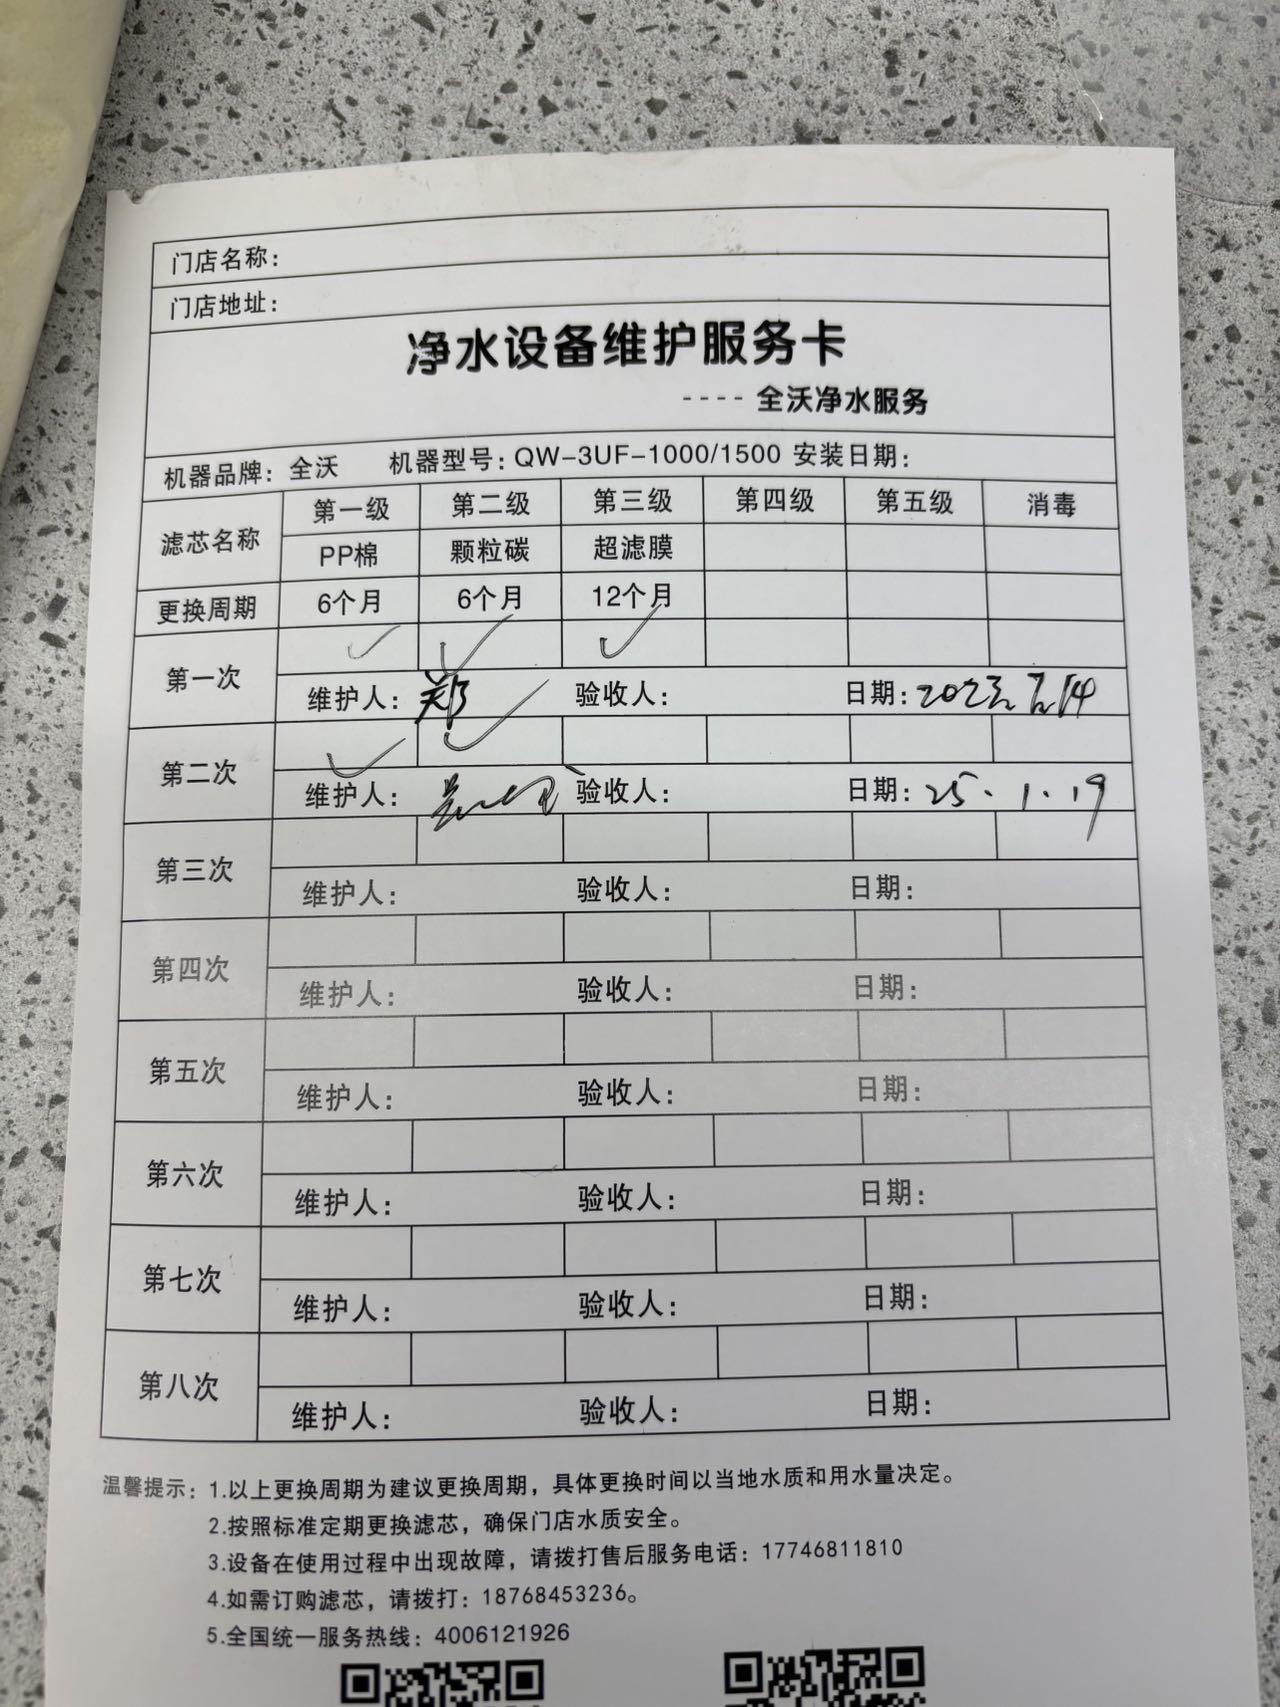 门店名称：
门店地址：
净水设备维护服务卡
---- 全沃净水服务
机器品牌：全沃 机器型号：QW-3UF-1000/1500 安装日期：
滤芯名称 第一级 第二级 第三级 第四级 第五级 消毒
PP棉 颗粒碳 超滤膜
更换周期 6个月 6个月 12个月
第一次 ✓ ✓ ✓
维护人：郑 验收人： 日期：
第二次 ✓ ✓
维护人： 验收人： 日期：25.1.19
第三次
维护人： 验收人： 日期：
第四次
维护人： 验收人： 日期：
第五次
维护人： 验收人： 日期：
第六次
维护人： 验收人： 日期：
第七次
维护人： 验收人： 日期：
第八次
维护人： 验收人： 日期：
温馨提示：1.以上更换周期为建议更换周期，具体更换时间以当地水质和用水量决定。
2.按照标准定期更换滤芯，确保门店水质安全。
3.设备在使用过程中出现故障，请拨打售后服务电话：17746811810
4.如需订购滤芯，请拨打：18768453236。
5.全国统一服务热线：4006121926